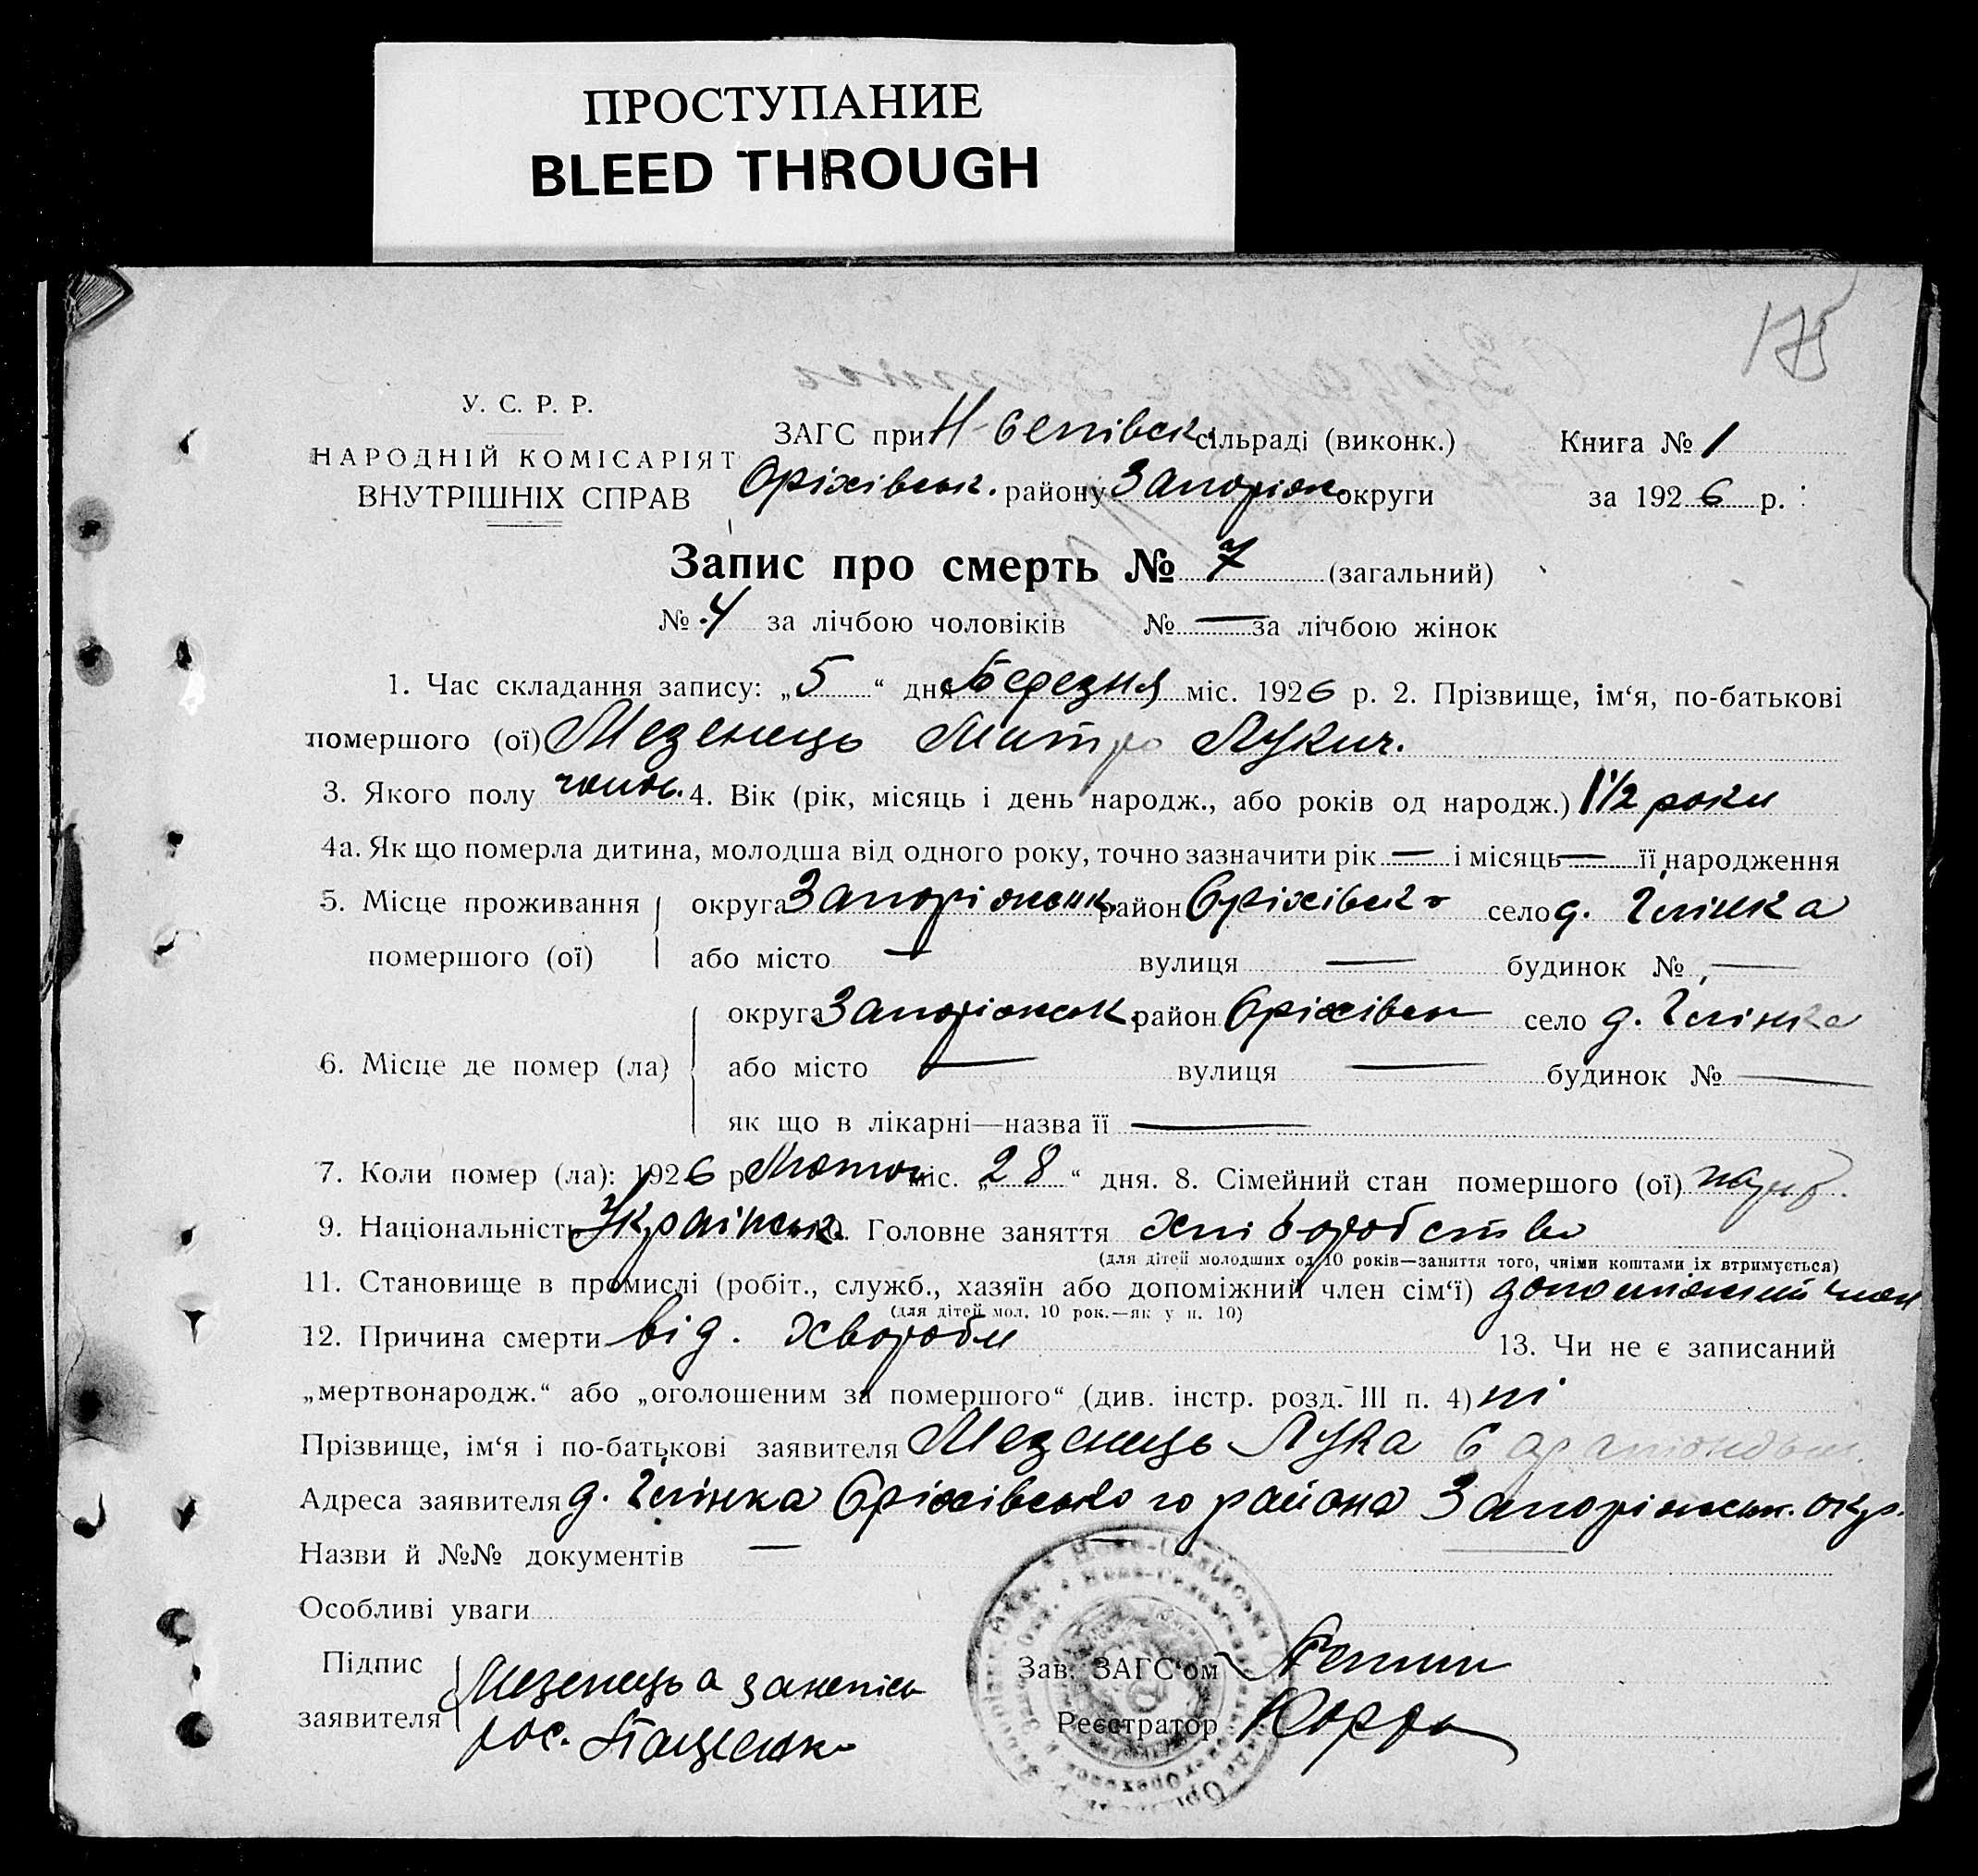 ПРОСТУПАНИЕ
BLEED THROUGH
175
У. С. Р. Р.
НАРОДНІЙ КОМІСАРІЯТ
ВНУТРІШНІХ СПРАВ
ЗАГС при сільраді (виконк.)
Оріхівськ. району Запоріж округи
Книга № 1
за 1926 р.
Запис про смерть № 7 (загальний)
№ 4 за лічбою чоловіків № — за лічбою жінок
1. Час складання запису: „5“ дня Березня міс. 1926 р. 2. Прізвище, ім‘я, по-батькові
помершого (ої) Мезенець Митро Лукич.
3. Якого полу чолов. 4. Вік (рік, місяць і день народж., або років од народж.) 1 1/2 роки
4а. Як що померла дитина, молодша від одного року, точно зазначити рік — і місяць — її народження
5. Місце проживання округа Запоріжськ. район Оріхівськ село д.
помершого (ої) або місто — вулиця — будинок № —
округа Запоріжськ. район Оріхівськ село д.
6. Місце де помер (ла) або місто — вулиця — будинок № —
як що в лікарні—назва її —
7. Коли помер (ла): 1926 р. міс. „28“ дня. 8. Сімейний стан помершого (ої)
9. Національність Українськ. 10. Головне заняття хліборобство
(для дітей молодших од 10 років—заняття того, чиїми коштами їх втримується)
11. Становище в промислі (робіт., служб., хазяїн або допоміжний член сім‘ї) допоміжний член
(для дітей мол. 10 рок.—як у п. 10)
12. Причина смерти від. хвороби 13. Чи не є записаний
„мертвонародж.“ або „оголошеним за помершого“ (див. інстр. розд. III п. 4) ні
Прізвище, ім‘я і по-батькові заявителя Мезенець Лука
Адреса заявителя д. Оріхівського района Запоріжськ. окр.
Назви й №№ документів —
Особливі уваги
Підпис
заявителя
Мезенець а за неписьм
рос.
Зав. ЗАГС‘ом
Реєстратор